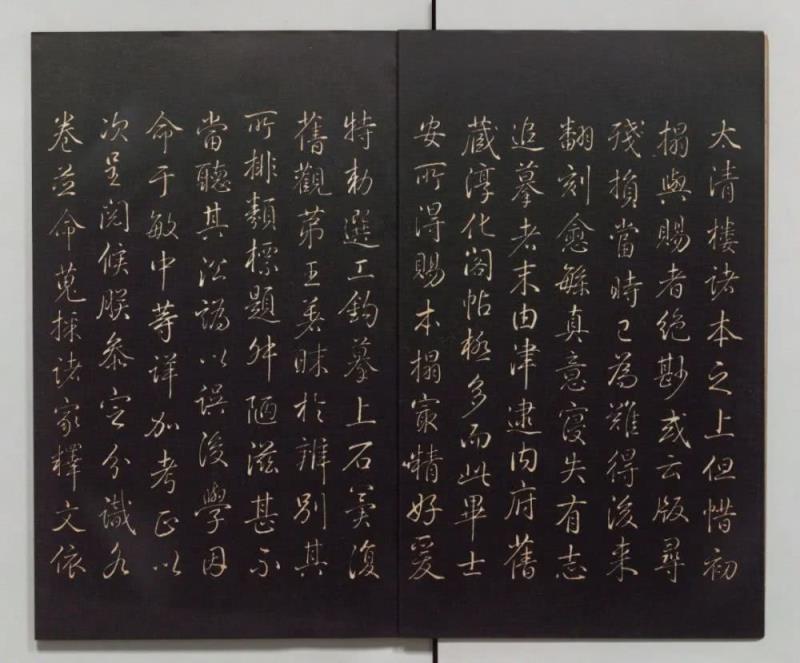 太清樓諸本之上但惜初
搨與賜者絕尠或云版尋
殘損當時已為難得後来
翻刻愈繇真意寖失有志
追摹者末由津逮内府舊
蔵淳化閣帖極多而此畢士
安所得賜本搨㝡精好爰
特勅選工鈎摹上石冀復
舊觀第王著昧於辨别其
所排類標題舛陋滋甚不
當聽其沿譌以誤後學因
命于敏中等詳加考正以
次呈閲候朕叅定分識各
卷並命蒐採諸家釋文依